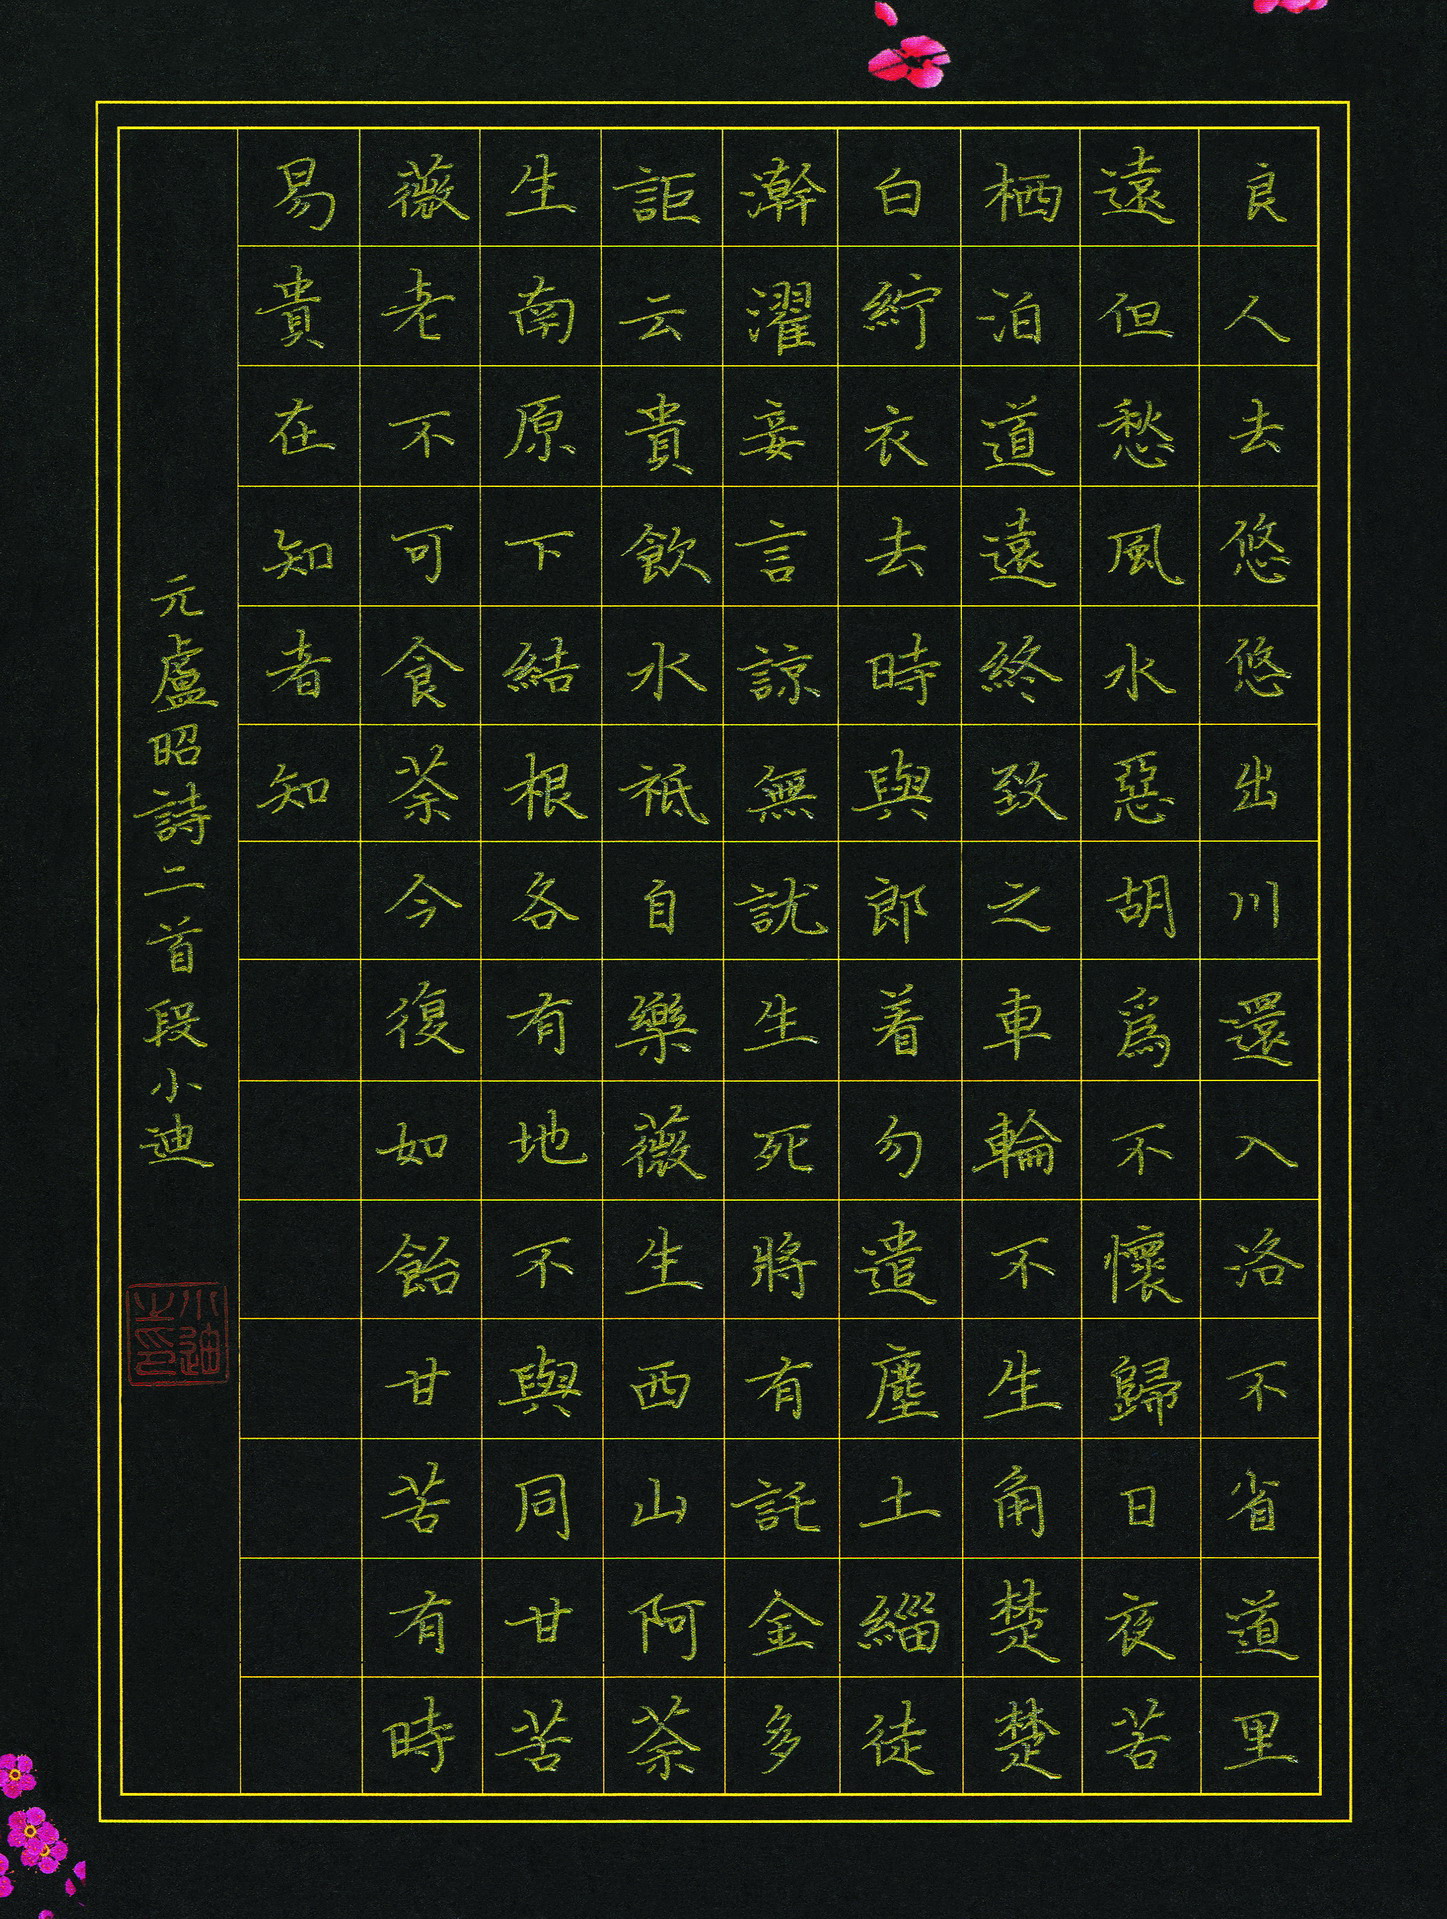 良人去悠悠出川還入洛不省道里
遠但愁風水惡胡爲不懷歸日夜苦
栖泊道遠終致之車輪不生角楚楚
白紵衣去時與郎着勿遣塵土緇徒
澣濯妾言諒無訧生死將有託金多
詎云貴飲水祇自樂薇生西山阿荼
生南原下結根各有地不與同甘苦
薇老不可食荼今復如飴甘苦有時
易貴在知者知
元盧昭詩二首段小迪
小迪之印